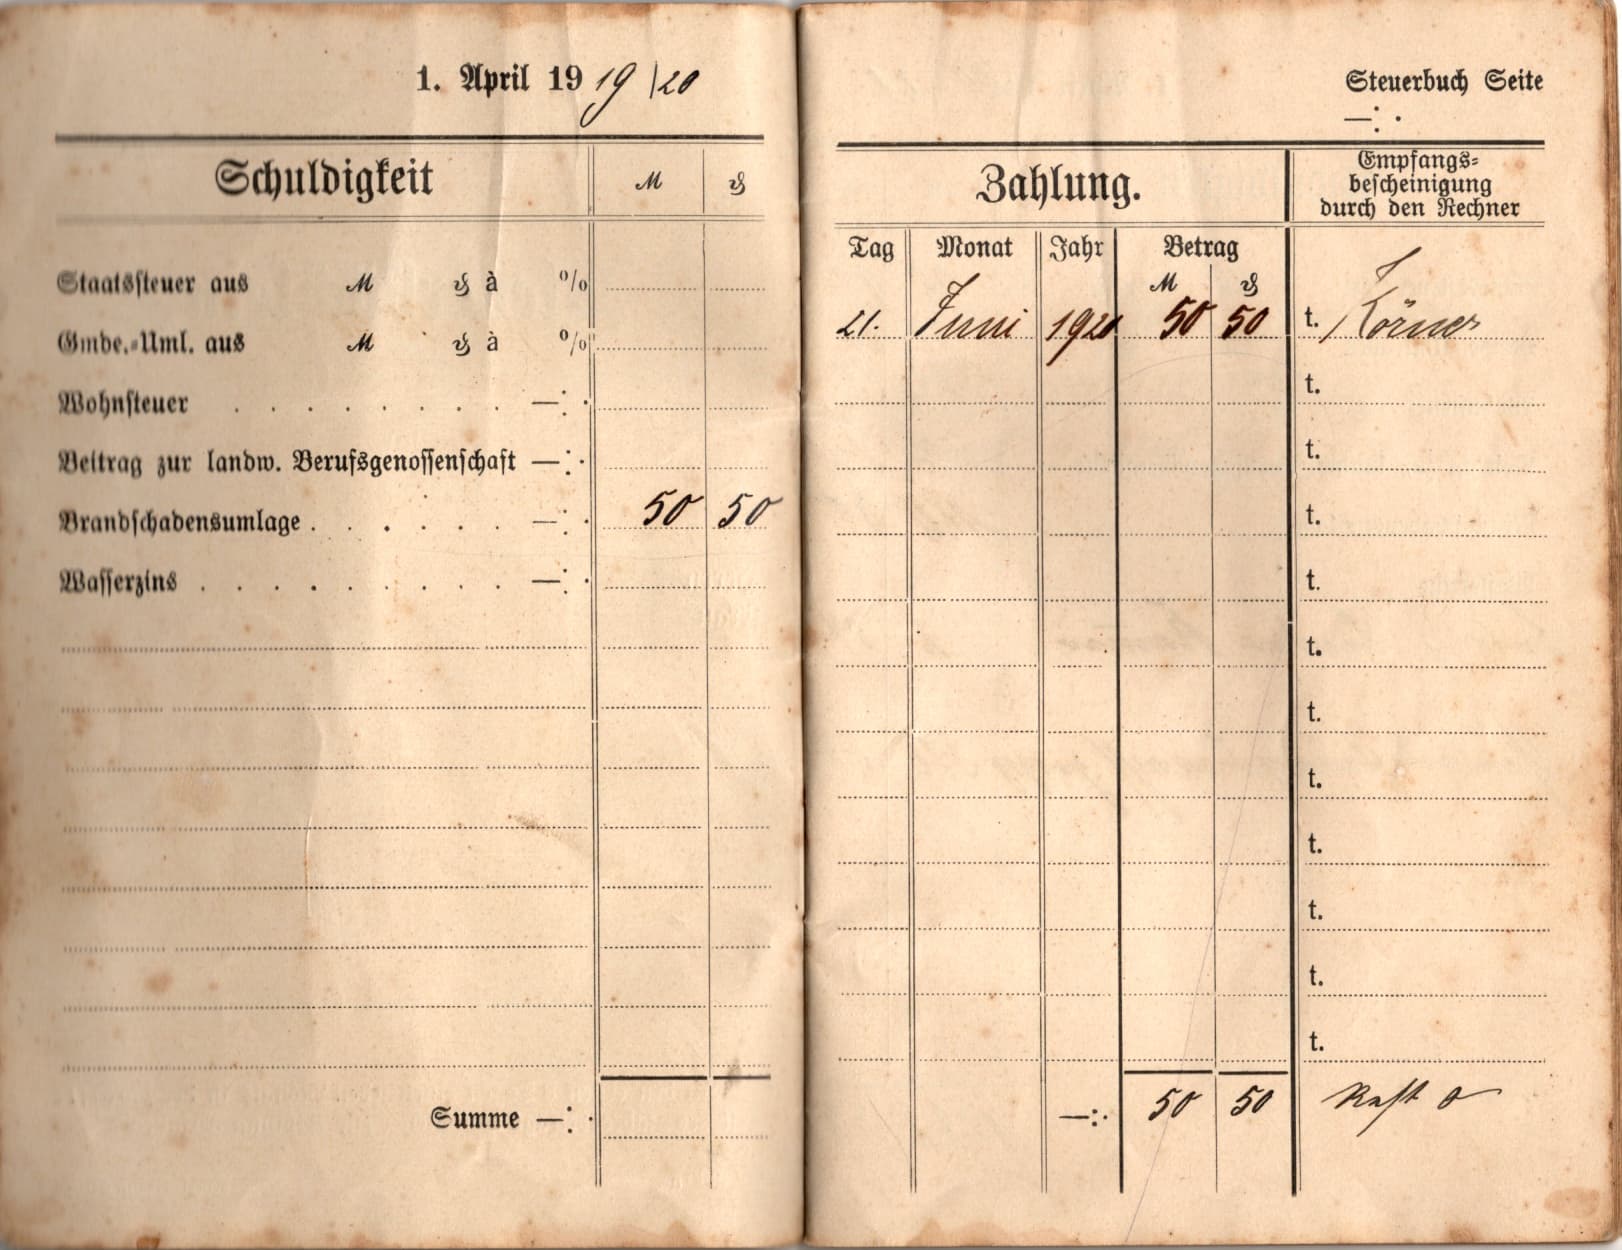 1. April 1919/20
Schuldigkeit ℳ ₰
Staatssteuer aus ℳ ₰ à %
Gmde.-Uml. aus ℳ ₰ à %
Wohnsteuer . . . . . . . . . —: ·
Beitrag zur landw. Berufsgenossenschaft —: ·
Brandschadensumlage . . . . . . —: · 50 50
Wasserzins . . . . . . . . . —: ·
Summe —: ·
Steuerbuch Seite
—: ·
Zahlung.
Empfangs-
bescheinigung
durch den Rechner
Tag Monat Jahr Betrag
ℳ ₰
21. Juni 1920 50 50 t. Körner
t.
t.
t.
t.
t.
t.
t.
t.
t.
t.
t.
—: · 50 50 Rest 0